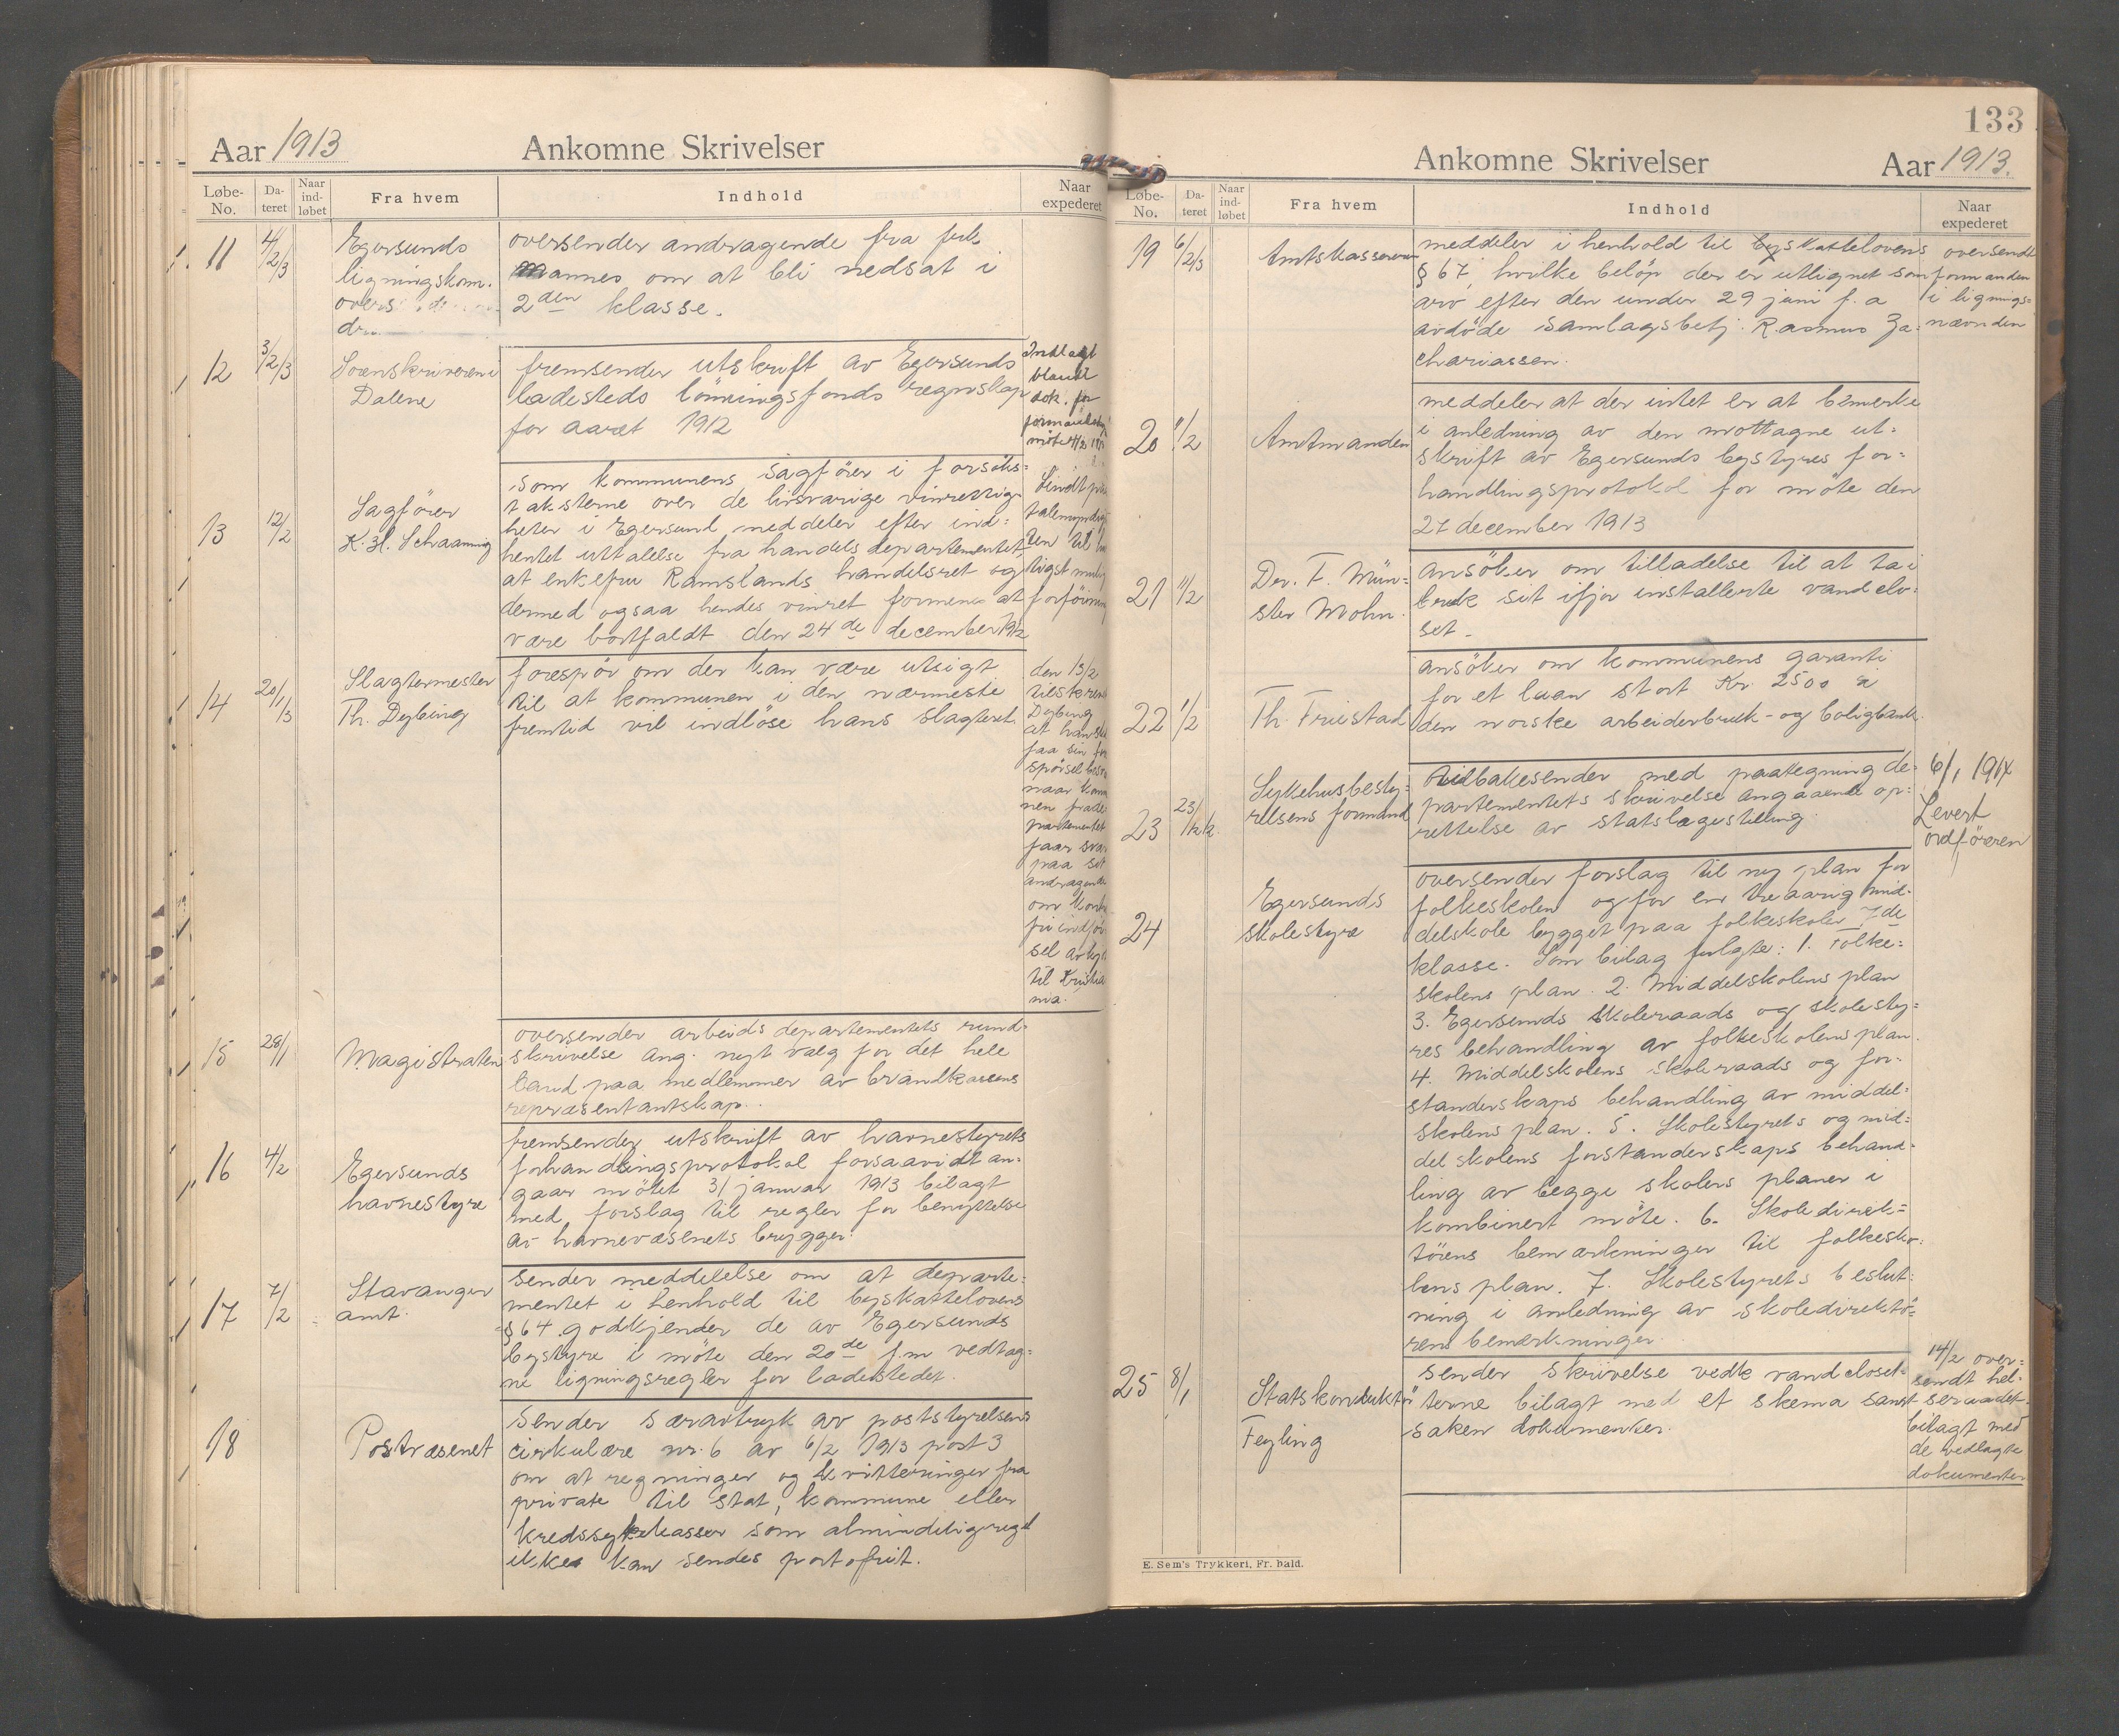 Aar 1913
Ankomne Skrivelser
Løbe-No.
Dateret
Naar indløbet
Fra hvem
Indhold
Naar expederet
11
4/2 13
Egersunds
ligningskom.
oversender andragende fra frk
Mannes om at bli nedsat i
2den klasse.
12
3/2 13
Sorenskriveren i
Dalene
fremsender utskrift av Egersunds
ladesteds lönningsfonds regnskap
for aaret 1912
Indlagt
blandt
dok. for
formandsk
möte
13
12/2
Sagförer
K. H. Schaanning
som kommunens sagförer i forsöks-
taksterne over de livsvarige vinrettig-
heter i Egersund meddeler efter ind-
hentet uttalelse fra handelsdepartementet,
at enkefru Ramslands handelsret og
dermed ogsaa hendes vinret formenes at
være bortfaldt den 24de december 1912
14
20/1 13
Slagtermester
Th. Dybing
forespör om der kan være utsigt
til at kommunen i den nærmeste
fremtid vil indlöse hans slagteret.
den 13/2
tilskrevet
Dybing
at han skal
faa sin fore
spörsel besva
naar kom
nen fra de
partementet
faar svar
paa sit
andragende
om
fri indför
sel av
til Kristia
nia.
15
28/1
Magistraten
oversender arbeidsdepartementets rund-
skrivelse ang. nyt valg for det hele
land paa medlemmer av brandkassens
repræsentantskap.
16
4/2
Egersunds
havnestyre
fremsender utskrift av havnestyrets
forhandlingsprotokol forsaavidt an-
gaar mötet 31 januar 1913 bilagt
med forslag til regler for benyttelse
av havnevæsenets brygger.
17
7/2
Stavanger
amt.
sender meddelelse om at departe-
mentet i henhold til byskattelovens
§ 64 godkjender de av Egersunds
bystyre i möte den 20de f.m vedtag-
ne ligningsregler for ladestedet.
18
Postvæsenet
Sender særavtryk av poststyrelsens
cirkulære nr. 6 av 6/2 1913 post 3
om at regninger og kvitteringer fra
private til stat, kommune eller
kredssykekasser som almindelig regel
ikke kan sendes portofrit.
133
Ankomne Skrivelser
Aar 1913.
Løbe-No.
Dateret
Naar indløbet
Fra hvem
Indhold
Naar expederet
19
6/2 13
Amtskasserern
meddeler i henhold til byskattelovens
§ 67, hvilke belöp der er utlignet som
arv efter den under 29 juni f. a
avdöde samlagsbetj. Rasmus Za-
chariassen.
oversendt
formanden
i lignings-
nævnden
20
11/2
Amtmanden
meddeler at der intet er at bemerke
i anledning av den mottagne ut-
skrift av Egersunds bystyres for-
handlingsprotokol for möte den
27 december 1913
21
11/2
Dr. F. Mün-
ster Mohn.
ansöker om tilladelse til at ta i
bruk sit ifjor installerte vandclo-
set.
22
1/2
Th. Friestad
ansöker om kommunens garanti
for et laan stort Kr. 2500 a
den norske arbeiderbruk- og boligbank.
23
Sykehusbesty-
relsens formand
tilbakesender med paategning de-
partementets skrivelse angaaende op-
rettelse av statslægestilling.
6/1 1914
Levert
ordföreren
24
Egersunds
skolestyre
oversender forslag til ny plan for
folkeskolen og for en treaarig mid-
delskole bygget paa folkeskolen 7de
klasse. Som bilag fulgte: 1. Folke-
skolens plan. 2. Middelskolens plan
3. Egersunds skoleraads og skolesty-
res behandling av folkeskolens plan.
4. Middelskolens skoleraads og for-
standerskaps behandling av middel-
skolens plan. 5. Skolestyrets og mid-
delskolens forstanderskaps behand-
ling av begge skolers planer i
kombinert möte. 6. Skoledirek-
törens bemærkninger til folkesko-
lens plan. 7. Skolestyrets beslut-
ning i anledning av skoledirektö-
rens bemerkninger.
25
8/1
Statskonduktör
Feyling
sender skrivelse vedk vandcloset-
terne bilagt med et skema samt
saken dokumenter.
14/2 over-
sendt hel-
seraadet
bilagt med
de vedlagte
dokumenter
E. Sem's Trykkeri, Fr. hald.